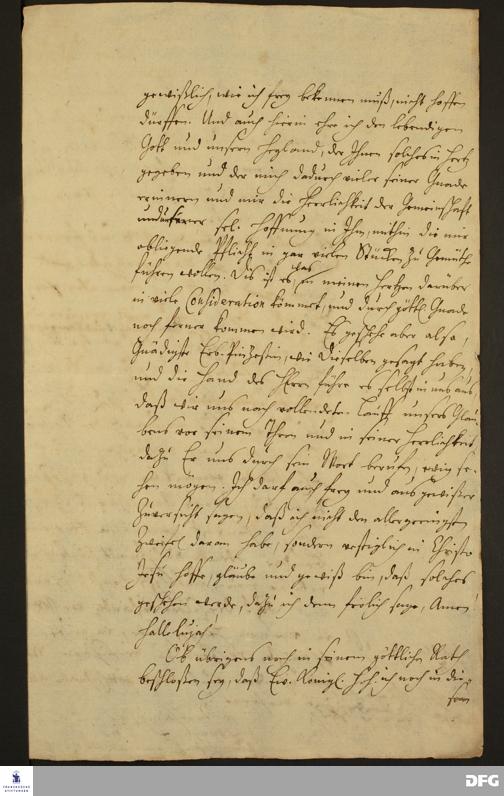 gewißlich, wie ich frey bekennen muß, nicht hoffen
dürffen. Und auch hierin ehre ich den lebendigen
Gott und unsern Heyland, der Ihnen solches in Hertz
gegeben und der mich dadurch vieler seiner Gnade
erinnern und mir die Herrlichkeit der Gemeinschaft
und unserer sel. Hoffnung in Ihm, mithin die mir
obliegende Pflicht in gar vielen Stücken zu Gemüthe
führen wollen. Dis ist es, was in meinem Hertzen darüber
in viele Consideration kommet, und durch göttl. Gnade
noch ferner kommen wird. Es geschehe aber also,
Gnädigste Erb-Prinzeßin, wie Dieselben gesagt haben,
und die Hand des HErrn führe es selbst in uns aus
daß wir uns nach vollendeten Lauff unsers Glau-
bens vor seinem Thron und in seiner Herrlichkeit
dazu Er uns durch sein Wort berufen, ewig se-
hen mögen. Ich darf auch frey und aus gewisser
Zuversicht sagen, daß ich nicht den allergeringsten
Zweifel daran habe, sondern vestiglich in Christo
JEsu hoffe, gläube und gewiß bin, daß solches
geschehen werde, dazu ich denn frölich sage, Amen!
Hallelujah!
Ob übrigens noch in seinem göttlichen Rath
beschlossen sey, daß Ew. Königl. H. ich noch in die-
sem
FRANCKESCHE
STIFTUNGEN
DFG